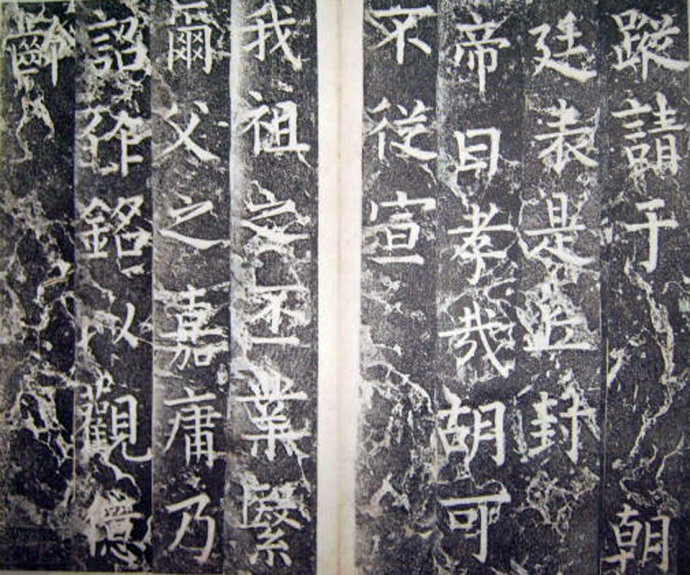 蹤請于朝
廷表是丘封
帝曰孝哉胡可
不從宣
我祖之丕業繄
爾父之嘉庸乃
詔作銘以觀億
齡